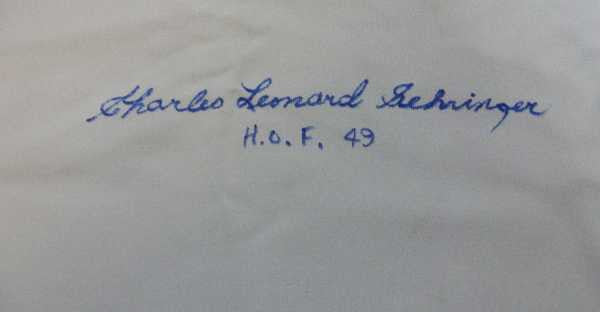 Charles Leonard Gehringer
H.O.F. 49